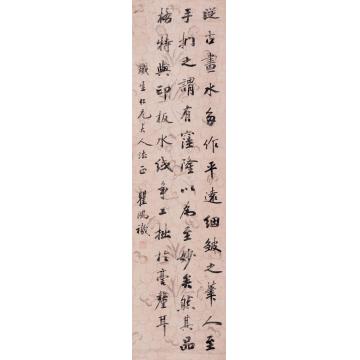 從古畫水多作平遠細皴之筆人至
手捫之謂有窪隆以為至妙矣然其品
格特與印板水紙爭工拙於毫釐耳
鐵生仁兄大人法正 瞿鴻禨